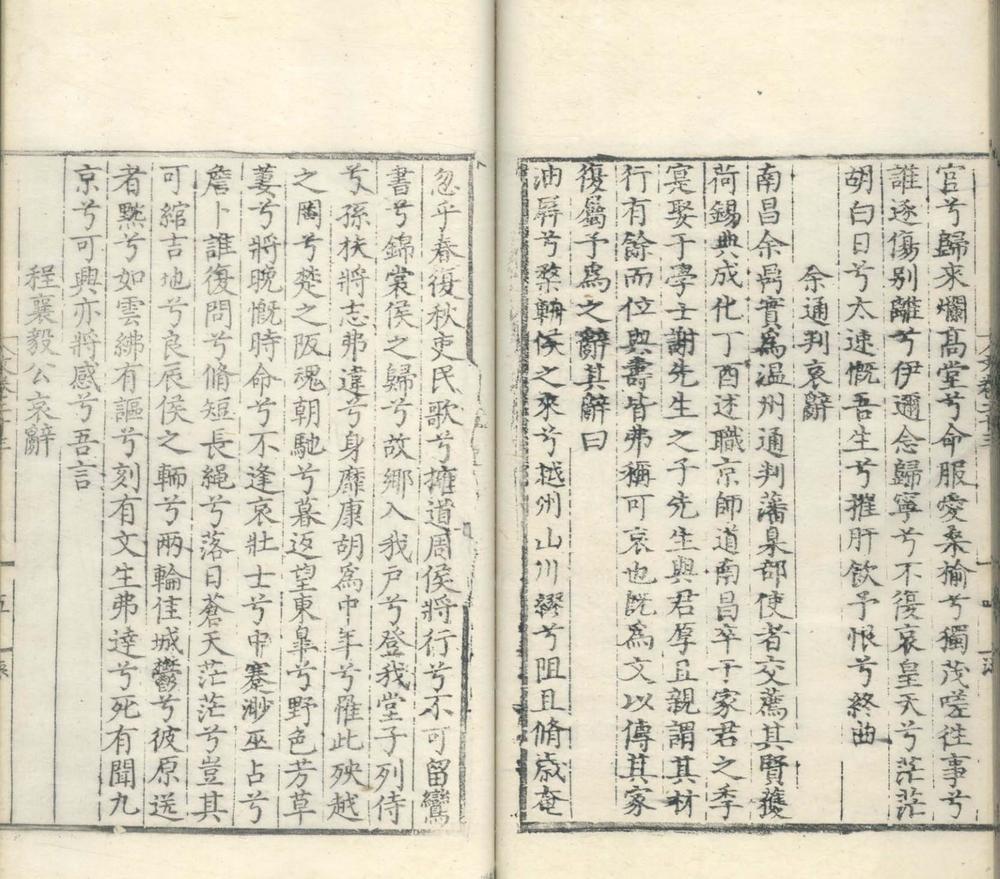 官兮歸來爛髙堂兮命服愛桑榆兮獨茂嗟徃事兮
誰逐傷别離兮伊邇念歸寧兮不復哀皇天兮茫茫
胡白日兮太速慨吾生兮摧肝飲予恨兮終曲
余通判哀辭
南昌余鼎實爲温州通判藩臬部使者交薦其賢獲
荷錫典成化丁酉述職京師道南昌卒于家君之季
寔娶于學士謝先生之子先生與君厚且親謂其材
行有餘而位與壽皆弗稱可哀也既爲文以傳其家
復屬予爲之辭其辭曰
油屏兮橤輈侯之來兮越州山川繆兮阻且脩歳奄
忽乎春復秋吏民歌兮擁道周侯將行兮不可留鸞
書兮錦裳侯之歸兮故鄉入我戸兮登我堂子列侍
兮孫扶將志弗違兮身靡康胡爲中年兮惟此殃越
之閩兮楚之阪魂朝馳兮暮返望東臯兮野色芳草
萋兮將晩慨時命兮不逢哀壯士兮中蹇渺巫占兮
詹卜誰復問兮脩短長繩兮落日蒼天茫茫兮豈其
可綰吉地兮良辰侯之輀兮兩輪佳城鬱兮彼原送
者黙兮如雲紼有謳兮刻有文生弗達兮死有聞九
京兮可興亦將感兮吾言
程襄毅公哀辭